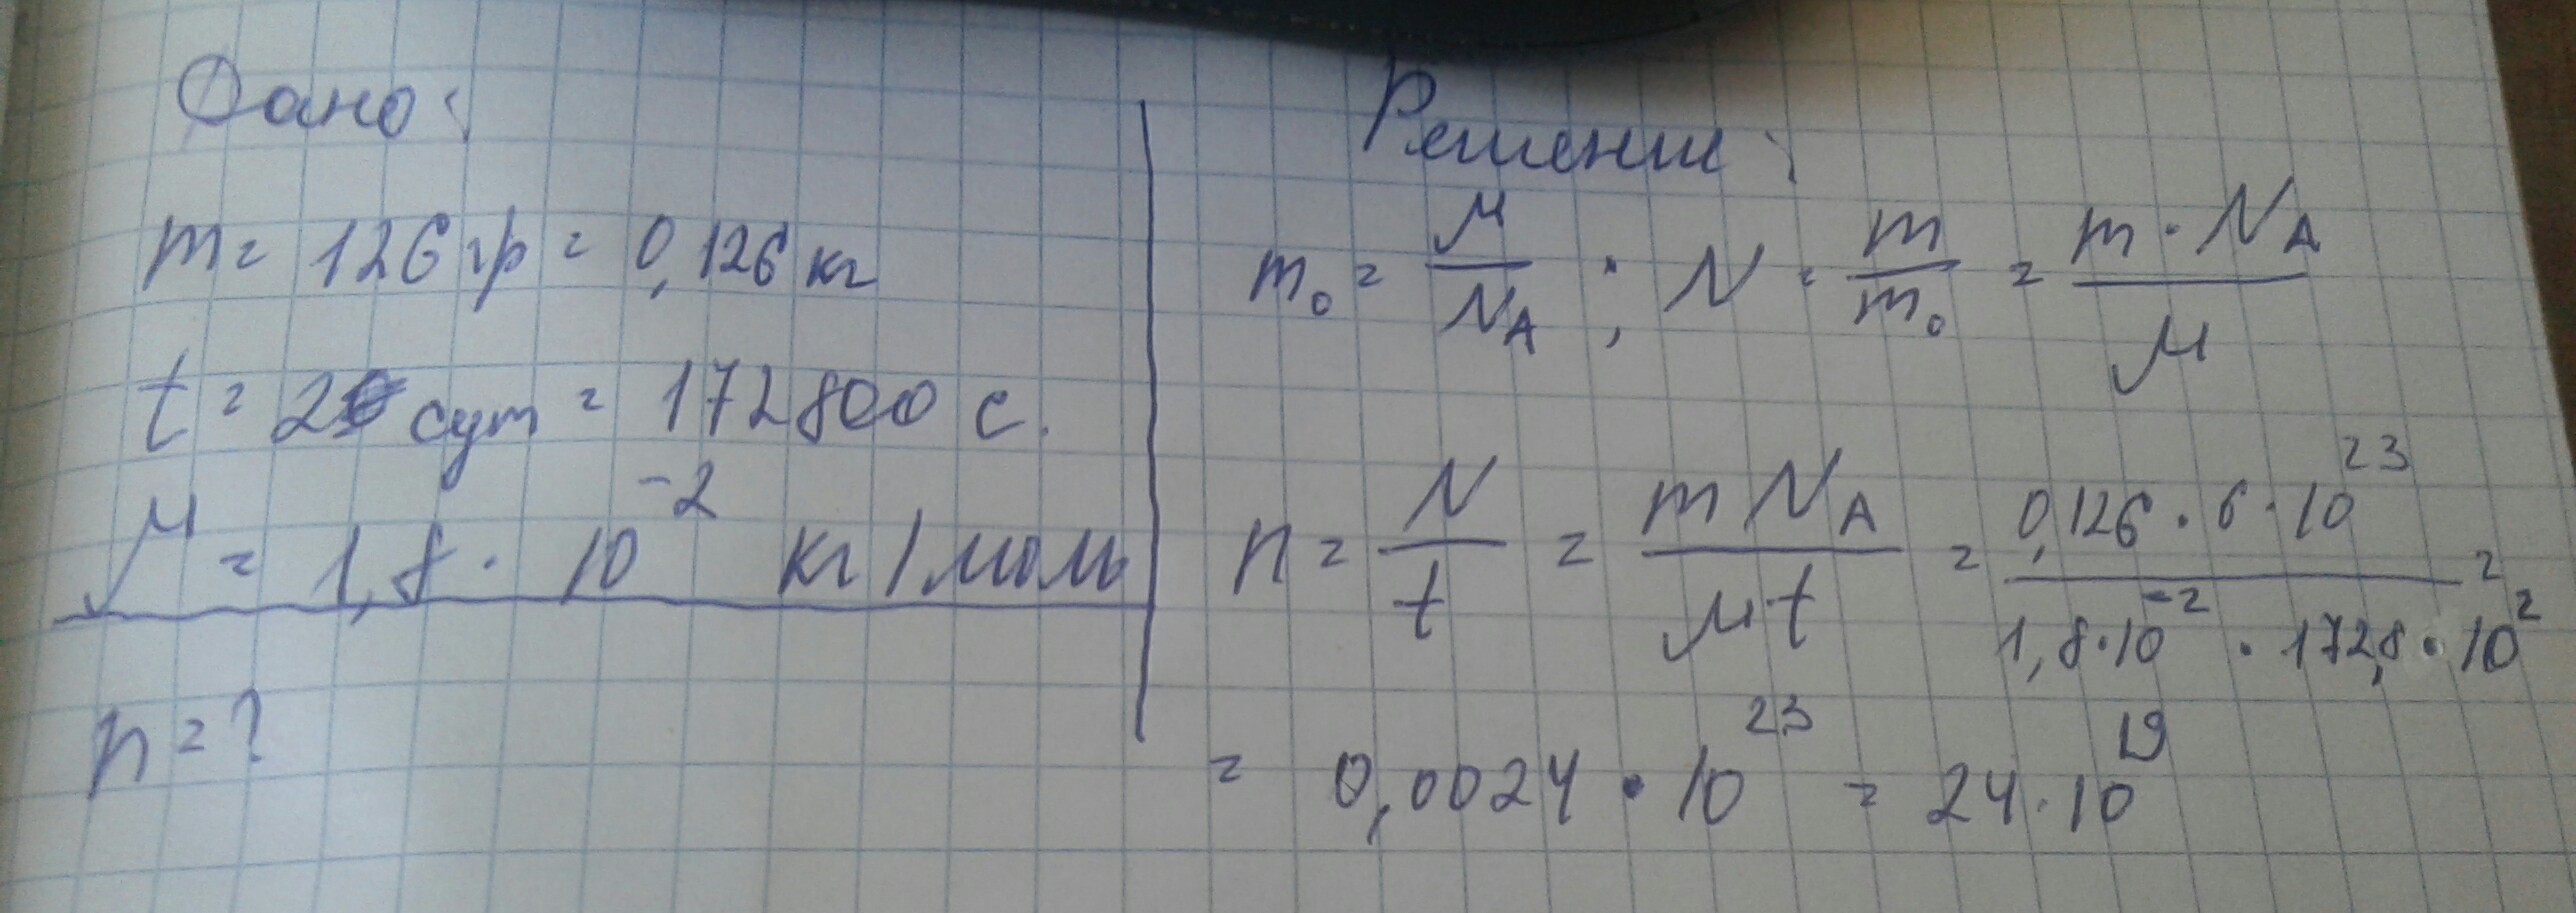 Дано:
m = 126 гр = 0,126 кг
t = 2 сут = 172800 с.
μ = 1,8 · 10^-2 кг/моль
n = ?
Решение:
m₀ = μ/N_A ; N = m/m₀ = m · N_A/μ
n = N/t = m N_A/μt = 0,126 · 6 · 10^23/1,8·10^-2 · 172,8 · 10^2 =
= 0,0024 · 10^23 = 24 · 10^19